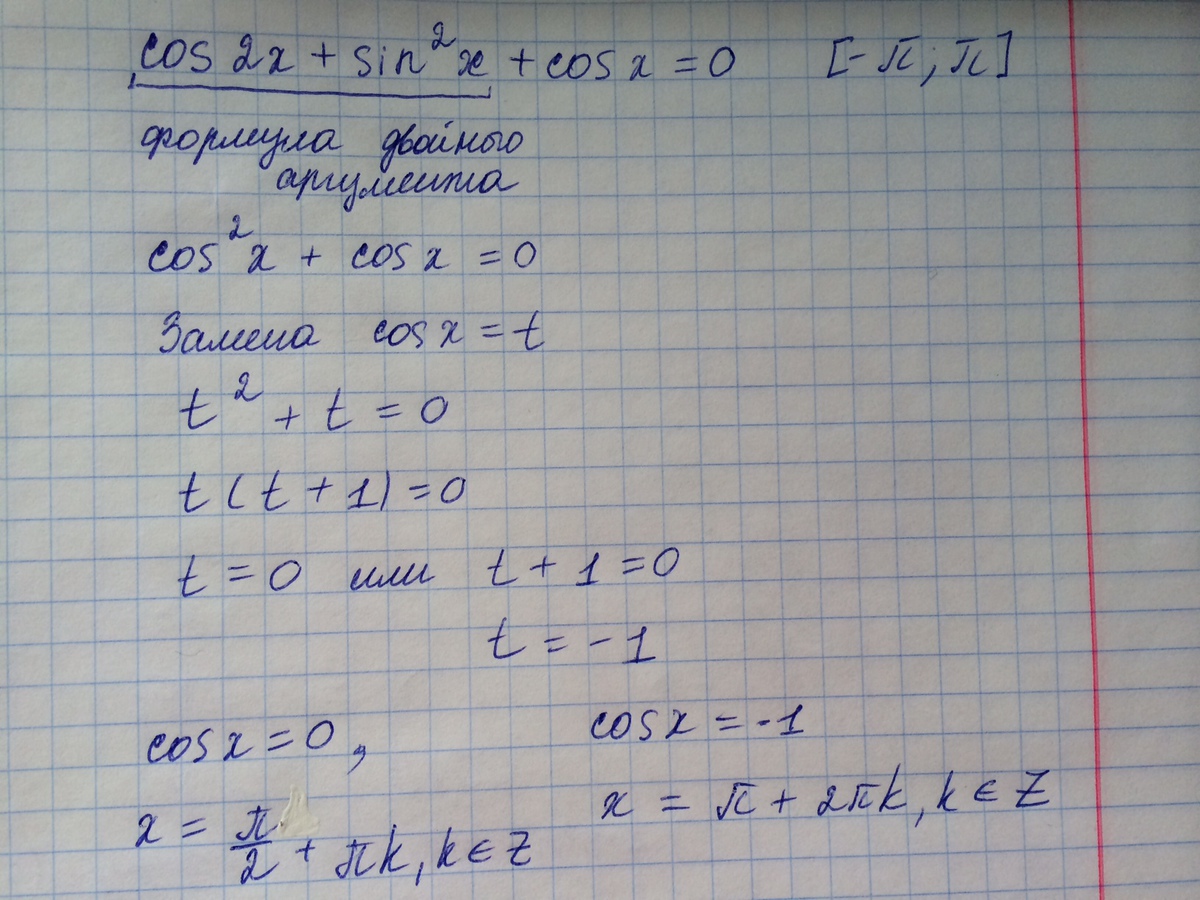 cos 2x + sin²x + cos x = 0 [-π; π]
формула двойного
аргумента
cos²x + cos x = 0
Замена cos x = t
t² + t = 0
t(t + 1) = 0
t = 0 или t + 1 = 0
t = -1
cos x = 0, cos x = -1
x = π/2 + πk, k ∈ Z x = π + 2πk, k ∈ Z